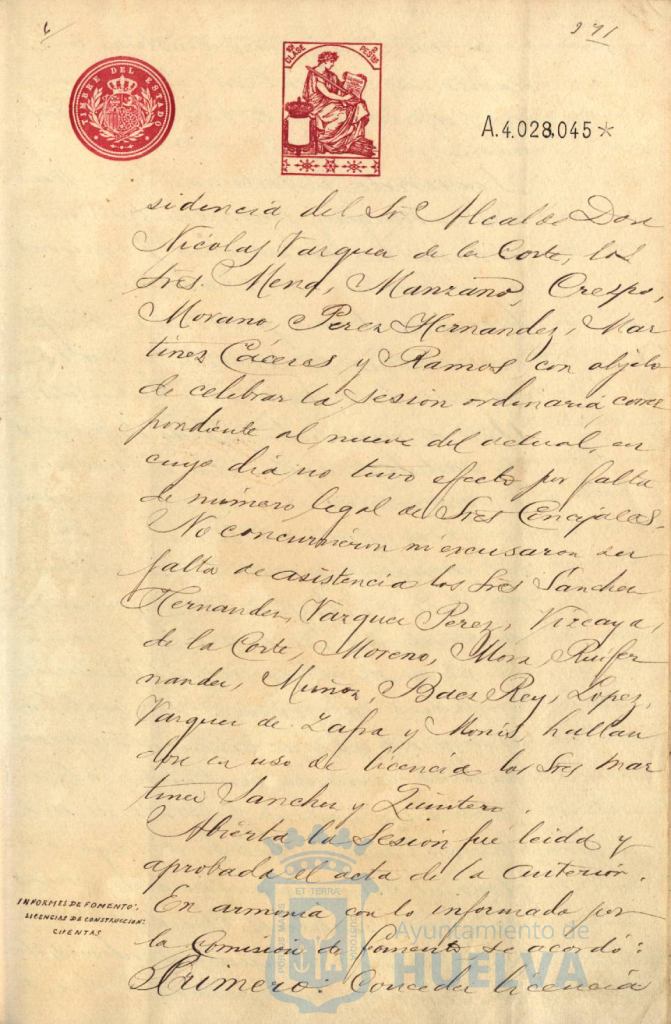 6
271
TIMBRE DEL ESTADO
10ª CLASE
2 PESETAS
A.4.028.045*
sidencia, del Sr. Alcalde Don
Nicolas Vazquez de la Corte, los
Sres. Mena, Manzano, Crespo,
Morano, Perez Hernandez, Mar
tinez Cáceres y Ramos con objeto
de celebrar la sesion ordinaria corres
pondiente al nueve del actual, en
cuyo dia no tuvo efecto por falta
de número legal de Sres Concejales.
No concurrieron ni excusaron su
falta de asistencia los Sres Sánchez
Hernandez, Vazquez Perez, Vizcaya,
de la Corte, Moreno, Mora, Ruifer
nandez, Muñoz, Baez Rey, Lopez,
Vazquez de Zafra y Monis, hallan
dose en uso de licencia los Sres Mar
tinez Sanchez y Quintero.
Abierta la Sesión fué leida y
aprobada el acta de la anterior.
INFORMES DE FOMENTO:
LICENCIAS DE CONSTRUCCION:
CUENTAS
En armonia con lo informado por
la Comision de fomento se acordó:
Primero: Conceder licencia
Ayuntamiento de
HUELVA